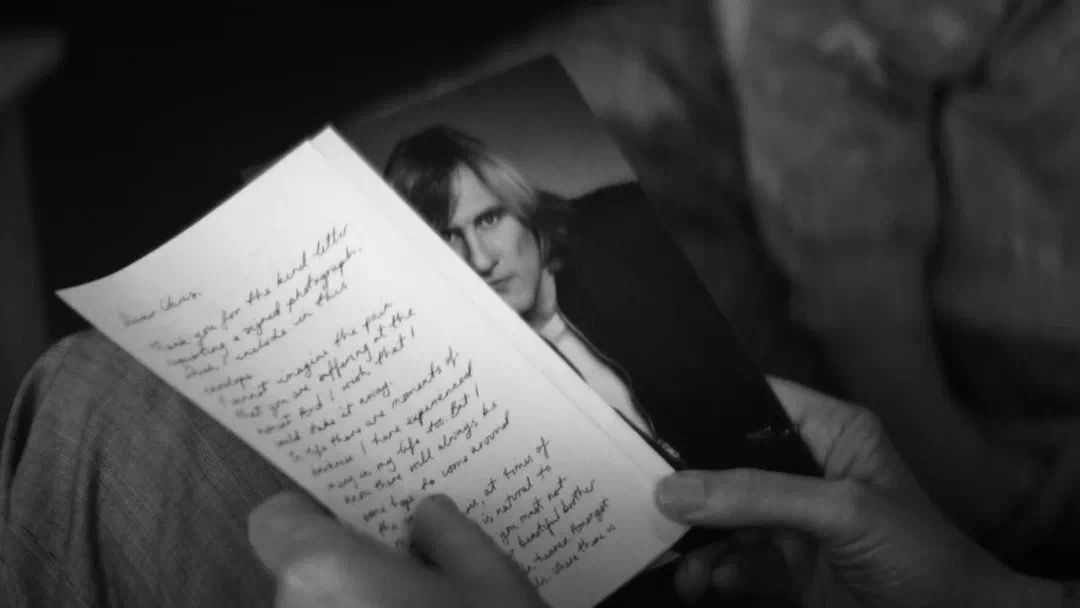 Dear Chris.
Thank you for the kind letter
requesting a signed photograph.
which I include in this
envelope
I cannot imagine the pain
that you are suffering at the
moment And I wish that I
could take it away.
In life there are moments of
darkness I have experienced
many in my life too But I
know there will always be
some hope to come around
the
at times of
is natural to
you must not
beautiful brother
heaven Amongst
where there is